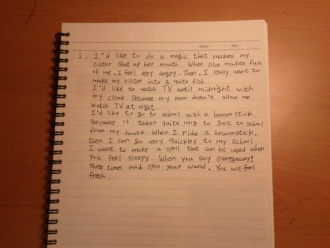 1. I'd like to do a magic that makes my
sister shut up her mouth. When she makes fun
of me, I feel very angry. Then, I really want to
make my sister into a quite fish.
I'd like to watch TV until midnight with
my clone. Because my mom doesn't allow me
watch TV at night.
I'd like to go to school with a broom stick.
Because it takes quite long to get to school
from my house. When I ride a broomstick,
then I can go very quickly to my school
I want to make a spell that can be used when
you feel sleepy. When you say
three times and spin your wand, you will feel
fresh.